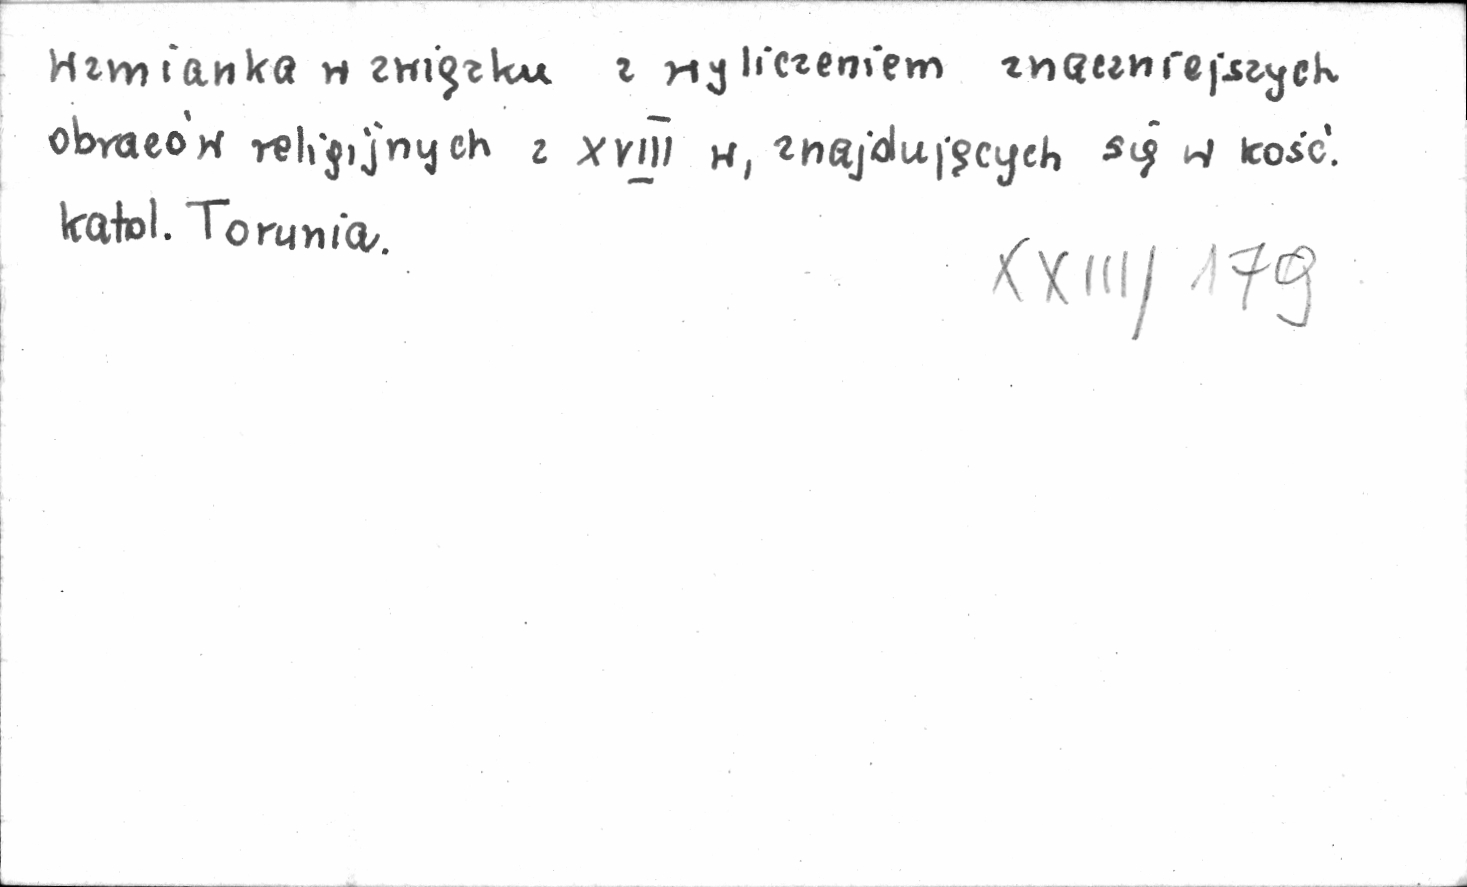 Wzmianka w związku z wyliczeniem znaczniejszych
obrazów religijnych z XVIII w, znajdujących się w kość.
katol. Torunia.
XXIII/179